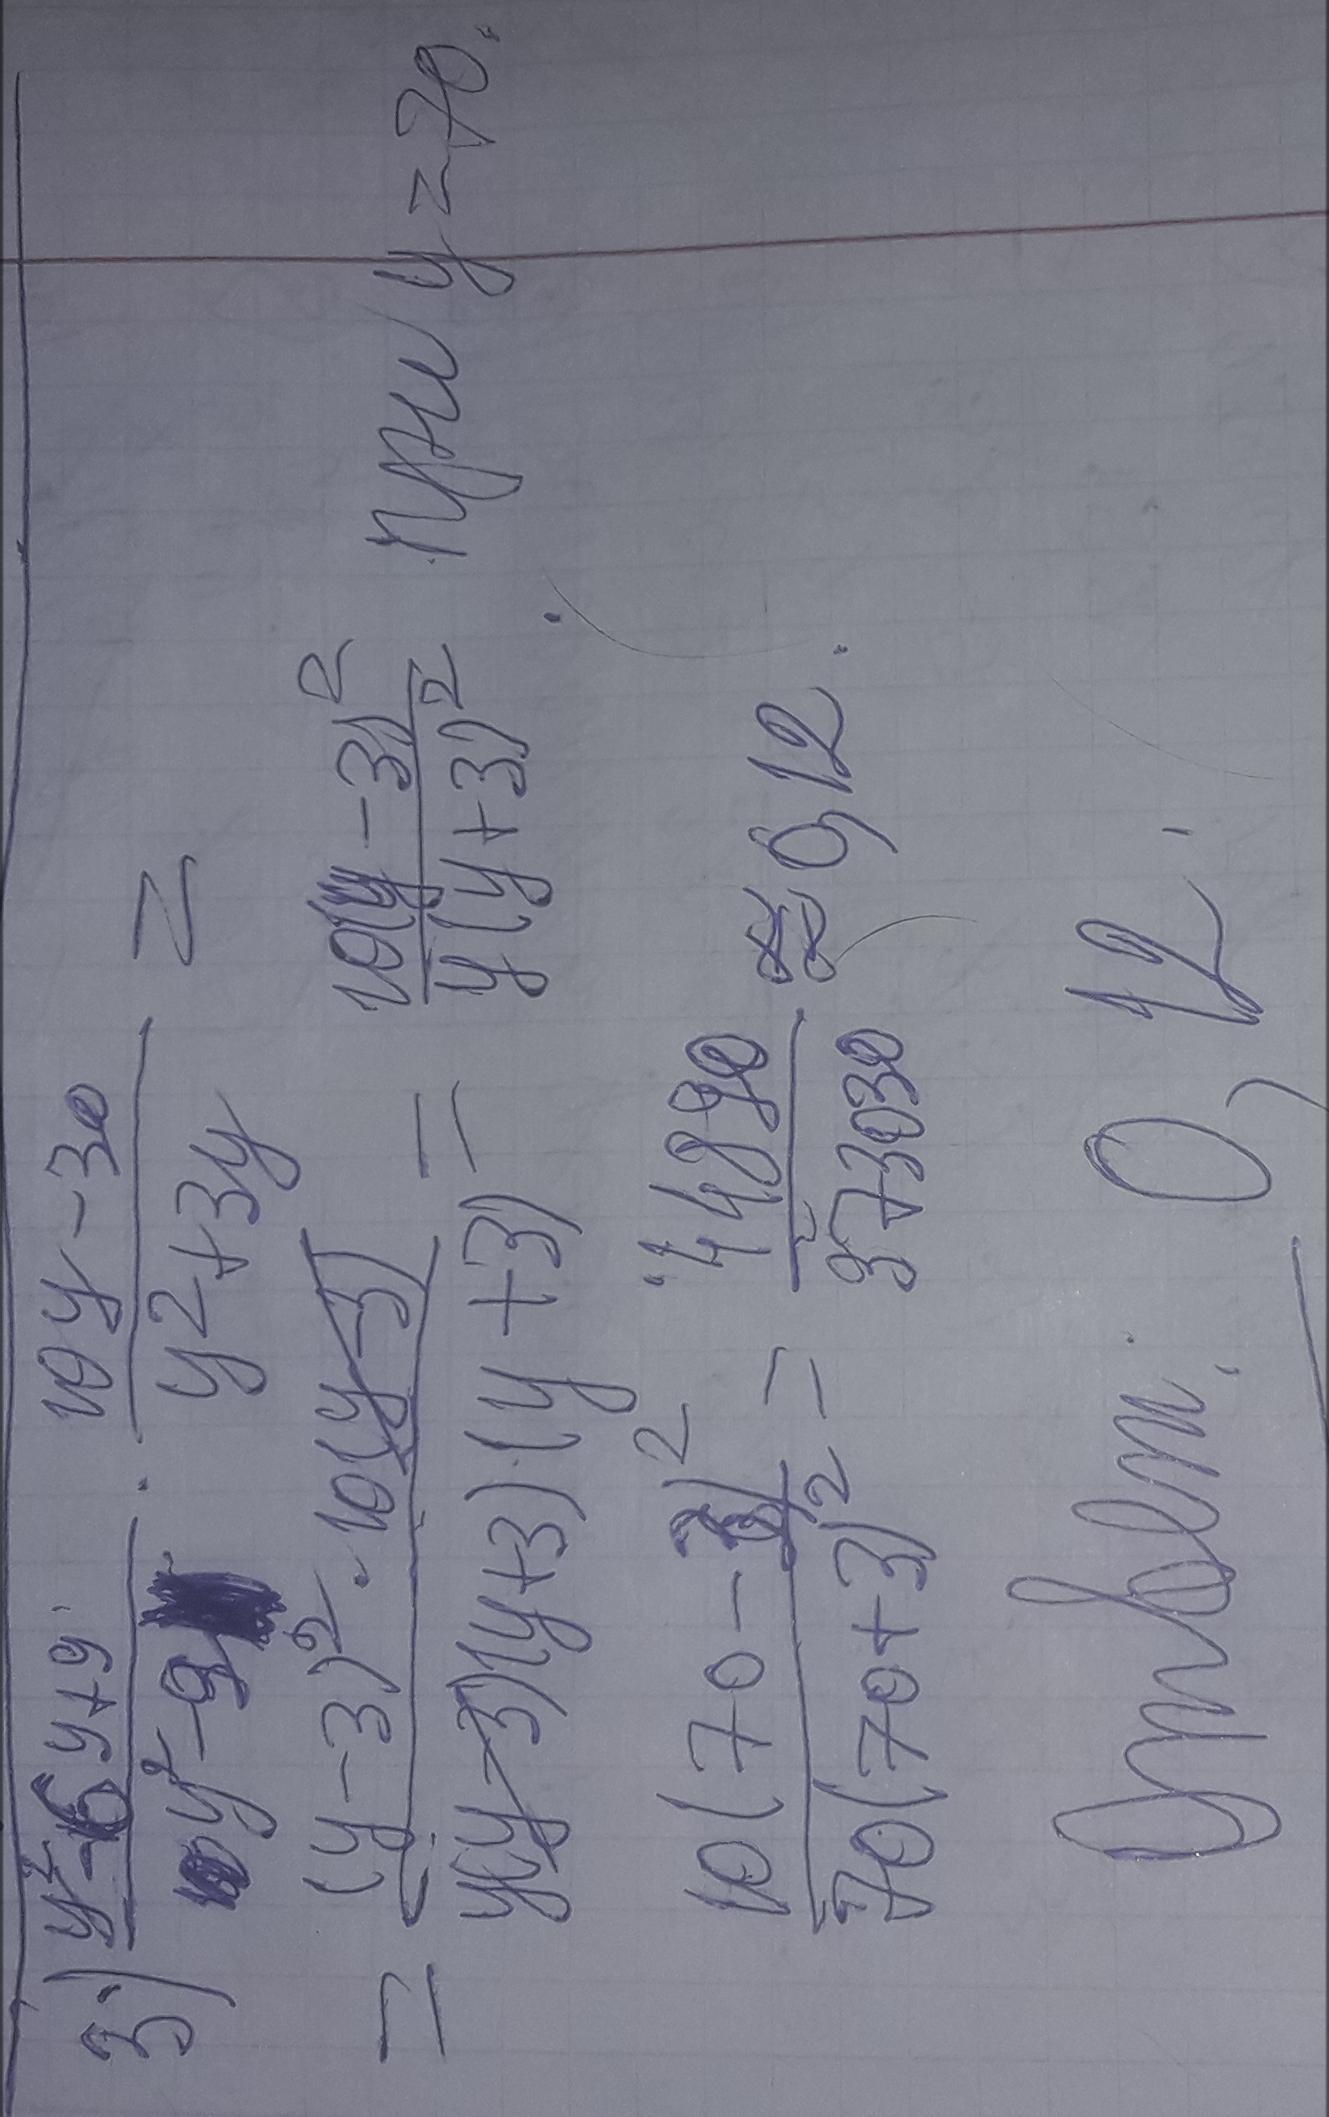 3) (y²-6y+9)/(y²-9) · (10y-30)/(y²+3y) =
= ((y-3)² · 10(y-3))/(y(y-3)(y+3)·(y+3)) = (10(y-3)²)/(y(y+3)²) при y=70.
(10(70-3)²)/(70(70+3)²) = 44890/373030 ≈ 0,12.
Ответ. 0,12.